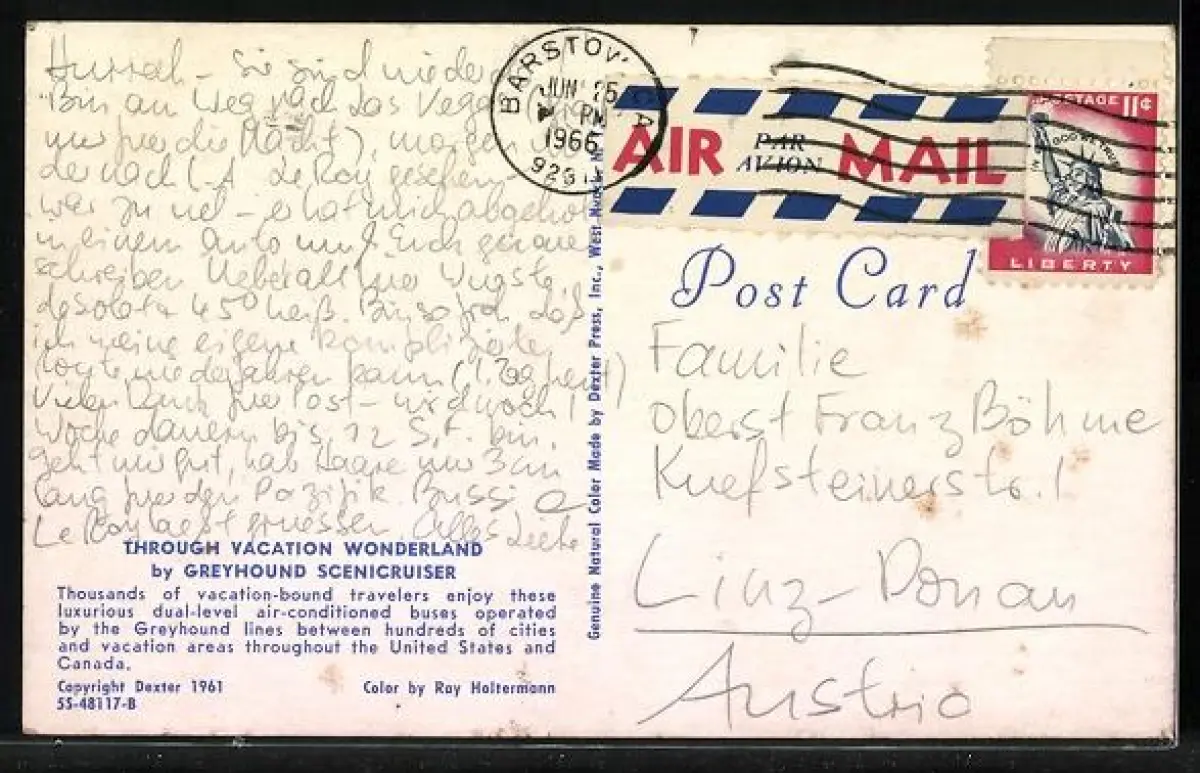 Hurrah – Sie sind wieder
Bin am Weg nach Las Vegas
nur fuer die Nacht, morgen
der nach L.A. LeRoy gesehen
war zu viel – er hat mich abgeholt
in einem Auto und
schreiben Ueberall hier Wueste,
45° heiß. Bin so froh daß
ich meine eigene komplizierte
wieder fahren kann (1. Tag heut)
Vielen Dank fuer Post – wird noch 1
Woche dauern bis 12 S.F. bin.
geht mir gut, hab Haare nur 3 cm
lang fuer den Pazifik. Bussi
LeRoy laest gruessen. Alles Liebe
THROUGH VACATION WONDERLAND
by GREYHOUND SCENICRUISER
Thousands of vacation-bound travelers enjoy these
luxurious dual-level air-conditioned buses operated
by the Greyhound lines between hundreds of cities
and vacation areas throughout the United States and
Canada.
Copyright Dexter 1961 Color by Ray Holtermann
55-48117-B
Genuine Natural Color Made by Dexter Press, Inc., West
BARSTOW CA
JUN 25
PM
1966
AIR PAR AVION MAIL
POSTAGE 11¢
IN GOD WE TRUST
LIBERTY
Post Card
Familie
Oberst Franz Böhme
Kuefsteinerstr. 1
Linz – Donau
Austria